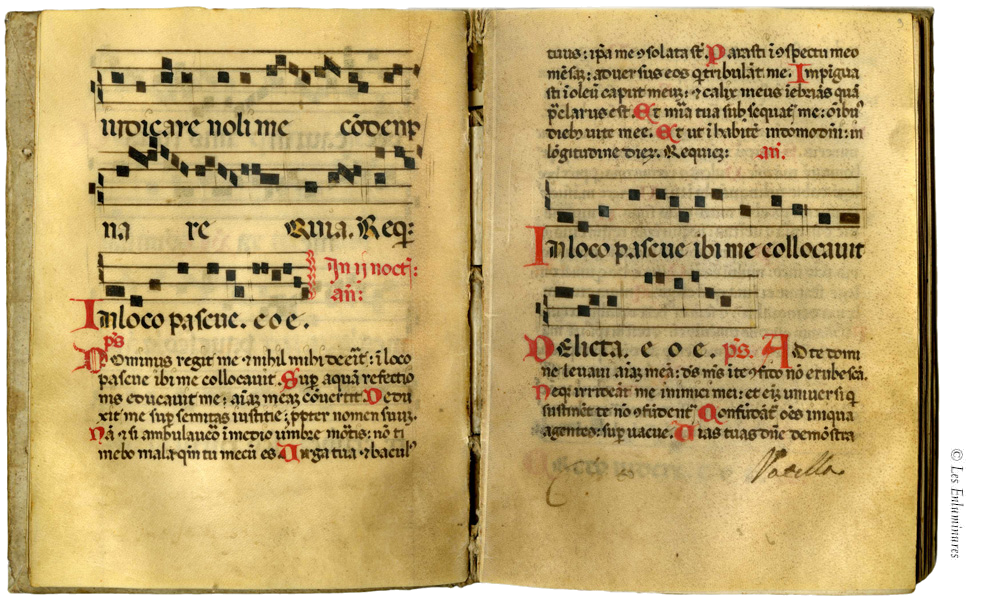 iudicare noli me cōdenp
na re Ruia. Req:
In ij noct̄:
añ:
In loco pascue. e o e.
p̄s
Dominus regit me ⁊ nihil mihi deeīt: ī loco
pascue ibi me collocauit. Sup aquā refectio
nis educauit me: aīaȝ meaȝ cōuertit Dedu
xit me sup semitas iustitie: ꝓpter nomen suuȝ.
Nā ⁊ si ambulauero ī medio vmbre mōtis: nō ti
mebo mala: qm̄ tu mecū es Uirga tua ⁊ bacul'
tuus: ip̄a me ꝯsolata st̄. Parasti ī ꝯspectu meo
mēsaȝ: aduersus eos q̄ tribulāt me. Impīgua
sti ī oleū caput meuȝ: ⁊ calix meus īebriās quā
p̄clarus est. Et mīa tua subsequat̄ me: oībꝰ
diebꝰ uite mee. Et ut ī habitē in domo dn̄i: in
lōgitudine dieȝ. Requieȝ: añ.
In loco pascue ibi me collocauit
Delicta. e o e. p̄s. Ad te domi
ne leuaui aīaȝ meā: ds̄ ms̄ ī te ꝯfido nō erubescā.
Neqȝ irrideāt me inimici mei: et eīȝ uniuersi q̄
sustinēt te nō ꝯfūdent̄ Confūdāt̄ oēs iniqua
agentes: sup uacue. Uias tuas dn̄e demōstra
© Les Enluminures